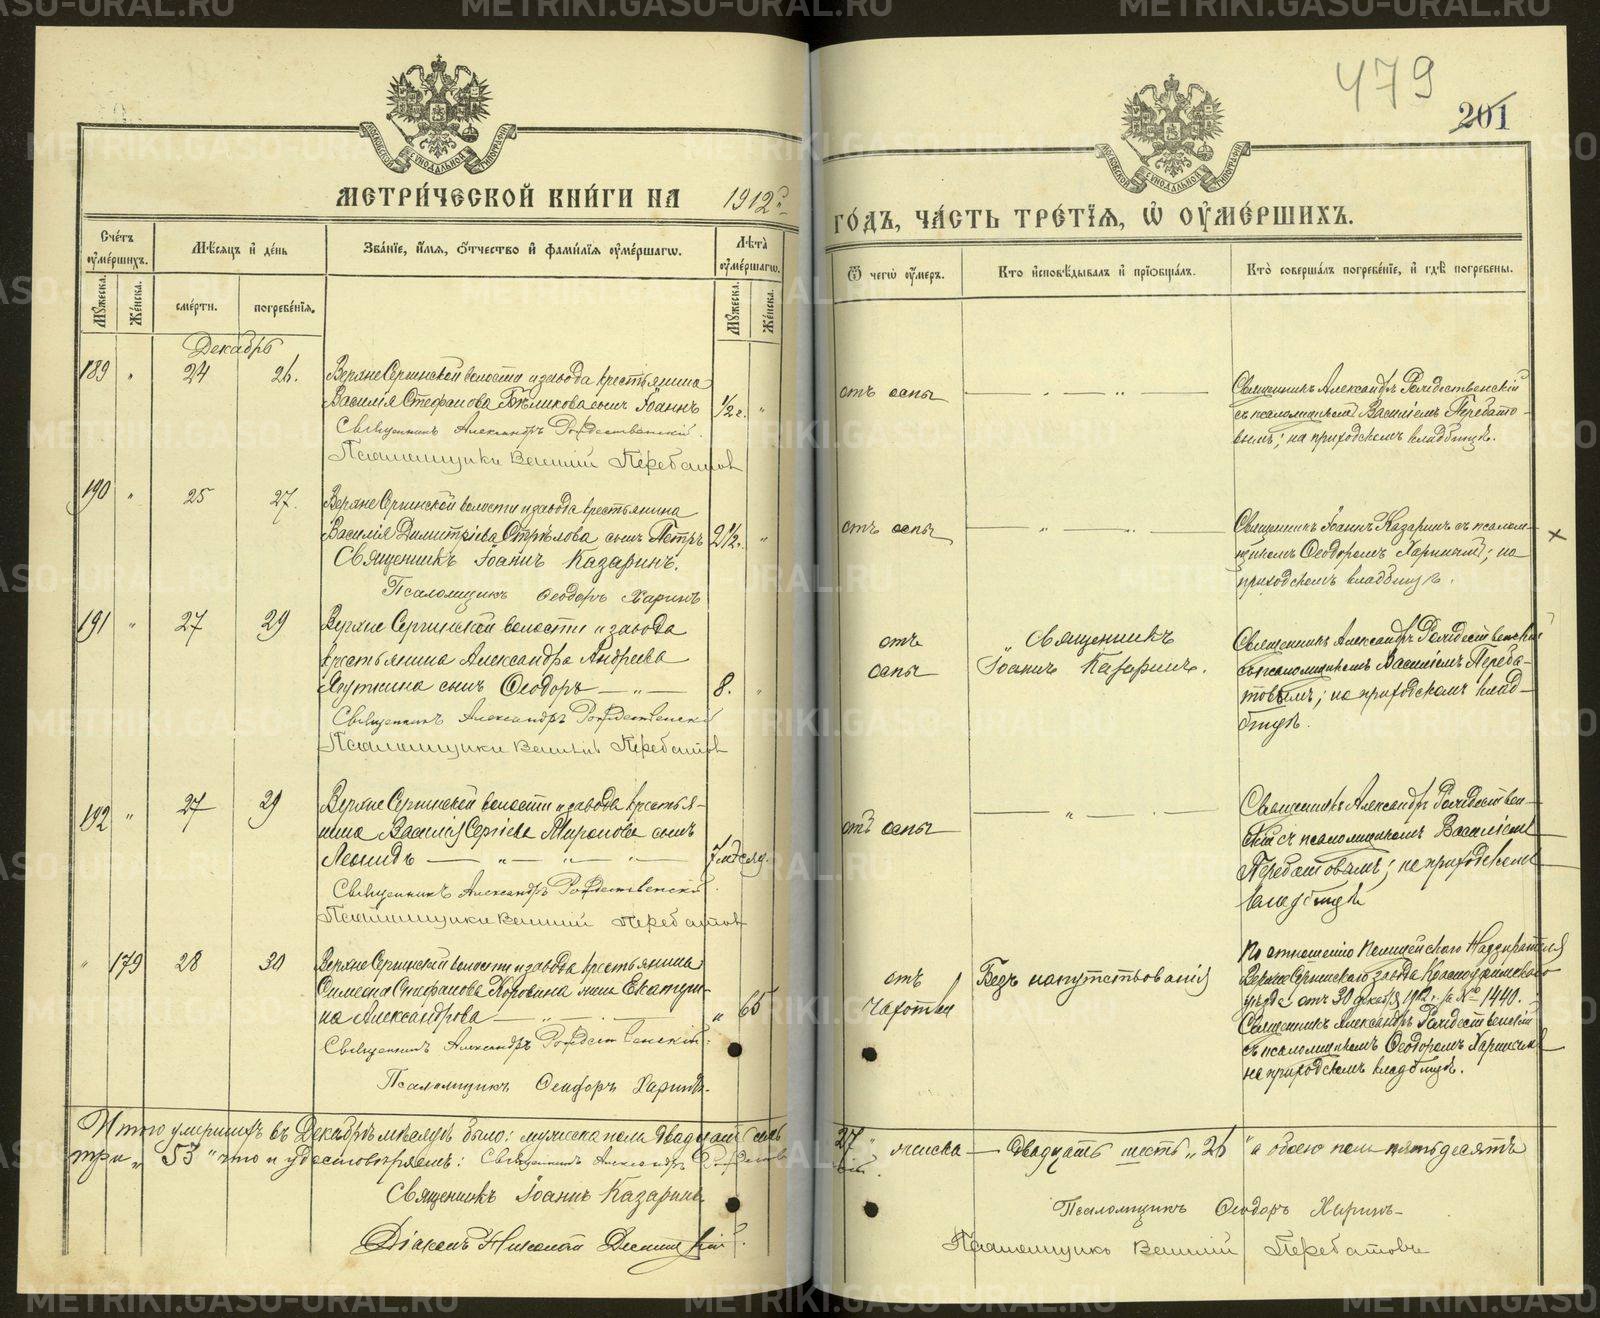 479
201
МЕТРИ́ЧЕСКОЙ КНИ́ГИ НА 1912 г.
ГО́ДЪ, ЧА́СТЬ ТРЕ́ТІѦ, Ѽ ОУ҆МЕ́РШИХЪ.
МОСКОВСКОЙ СѴНОДАЛЬНОЙ ТИПОГРАФІИ
МОСКОВСКОЙ СѴНОДАЛЬНОЙ ТИПОГРАФІИ
Сче́тъ оу҆ме́ршихъ.
Мꙋ́жеска.
Же́нска.
Мѣ́сѧцъ и҆ де́нь
сме́рти.
погребе́нїѧ.
Зва́нїе, и҆́мѧ, ѻ҆́тчество и҆ фами́лїѧ оу҆ме́ршагѡ.
Лѣ́та оу҆ме́ршагѡ.
Мꙋ́жеска.
Же́нска.
Ѿ чегѡ̀ оу҆́меръ.
Кто̀ и҆сповѣ́дывалъ и҆ прїѡбща́лъ.
Кто̀ соверша́лъ погребе́нїе, и҆ гдѣ̀ погребены̀.
Декабрь
189 " 24 26.
Верхне Сергинской волости и завода крестьянина
Василія Стефанова Бѣликова сынъ Іоаннъ 1/2 г. "
Священникъ Александръ Рождественскій.
Псаломщикъ Василій Перебатов
отъ оспы
Священникъ Александръ Рождественскій
съ псаломщикомъ Василіемъ Перебато-
вымъ; на приходскомъ кладбищѣ.
190 " 25 27.
Верхне Сергинской волости и завода крестьянина
Василія Димитріева Стрѣлова сынъ Петръ 2 1/2 г. "
Священникъ Іоаннъ Казаринъ.
Псаломщикъ Ѳеодоръ Харинъ
отъ оспы
Священникъ Іоаннъ Казаринъ съ псалом-
щикомъ Ѳеодоромъ Харинымъ; на
приходскомъ кладбищѣ.
191 " 27 29
Верхне Сергинской волости и завода
крестьянина Александра Андреева
сынъ Ѳеодоръ — " — 8. "
Священникъ Александръ Рождественскій
Псаломщикъ Василій Перебатов
отъ
оспы
Священникъ
Іоаннъ Казаринъ.
Священникъ Александръ Рождественскій
съ псаломщикомъ Василіемъ Переба-
товымъ; на приходскомъ клад-
бищѣ.
192 " 27 29
Верхне Сергинской волости и завода крестья-
нина Василія Сергіева Миронова сынъ
Леонидъ — " — " — " — 7 мѣсяц.
Священникъ Александръ Рождественскій.
Псаломщикъ Василій Перебатов
отъ оспы
Священникъ Александръ Рождествен-
скій съ псаломщикомъ Василіемъ
Перебатовымъ; на приходскомъ
кладбищѣ
" 179 28 30
Верхне Сергинской волости и завода крестьянина
Симеона Стефанова Коровина жена Екатери-
на Александрова — " 65
Священникъ Александръ Рождественскій.
Псаломщикъ Ѳеодоръ Харинъ.
отъ
чахотки
Безъ напутствованія
По отношенію Полицейскаго Надзирателя
Верхне Сергинскаго завода Красноуфимскаго
уѣзда отъ 30 декабря 1912 г. за № 1440.
Священникъ Александръ Рождественскій
съ псаломщикомъ Ѳеодоромъ Харинымъ
на приходскомъ кладбищѣ.
Итого умершихъ въ Декабрѣ мѣсяцѣ было: мужска пола двадцать семь 27 " женска — двадцать шесть " 26 " а обоего пола пятьдесятъ
три " 53 " что и удостовѣряемъ: Священникъ Александръ Рождественскій.
Священникъ Іоаннъ Казаринъ
Псаломщикъ Ѳеодоръ Харинъ
Діаконъ Николай
Псаломщикъ Василій Перебатовъ
METRIKI.GASO-URAL.RU